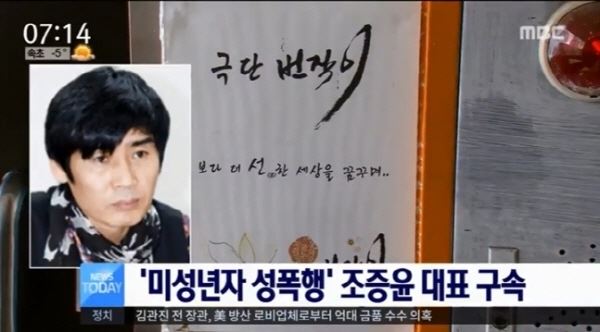 07:14
속초 -5°
mbc
극단 번작이
보다 더 선한 세상을 꿈꾸며..
NEWS
TODAY
'미성년자 성폭행' 조증윤 대표 구속
정치
김관진 전 장관, 美 방산 로비업체로부터 억대 금품 수수 의혹